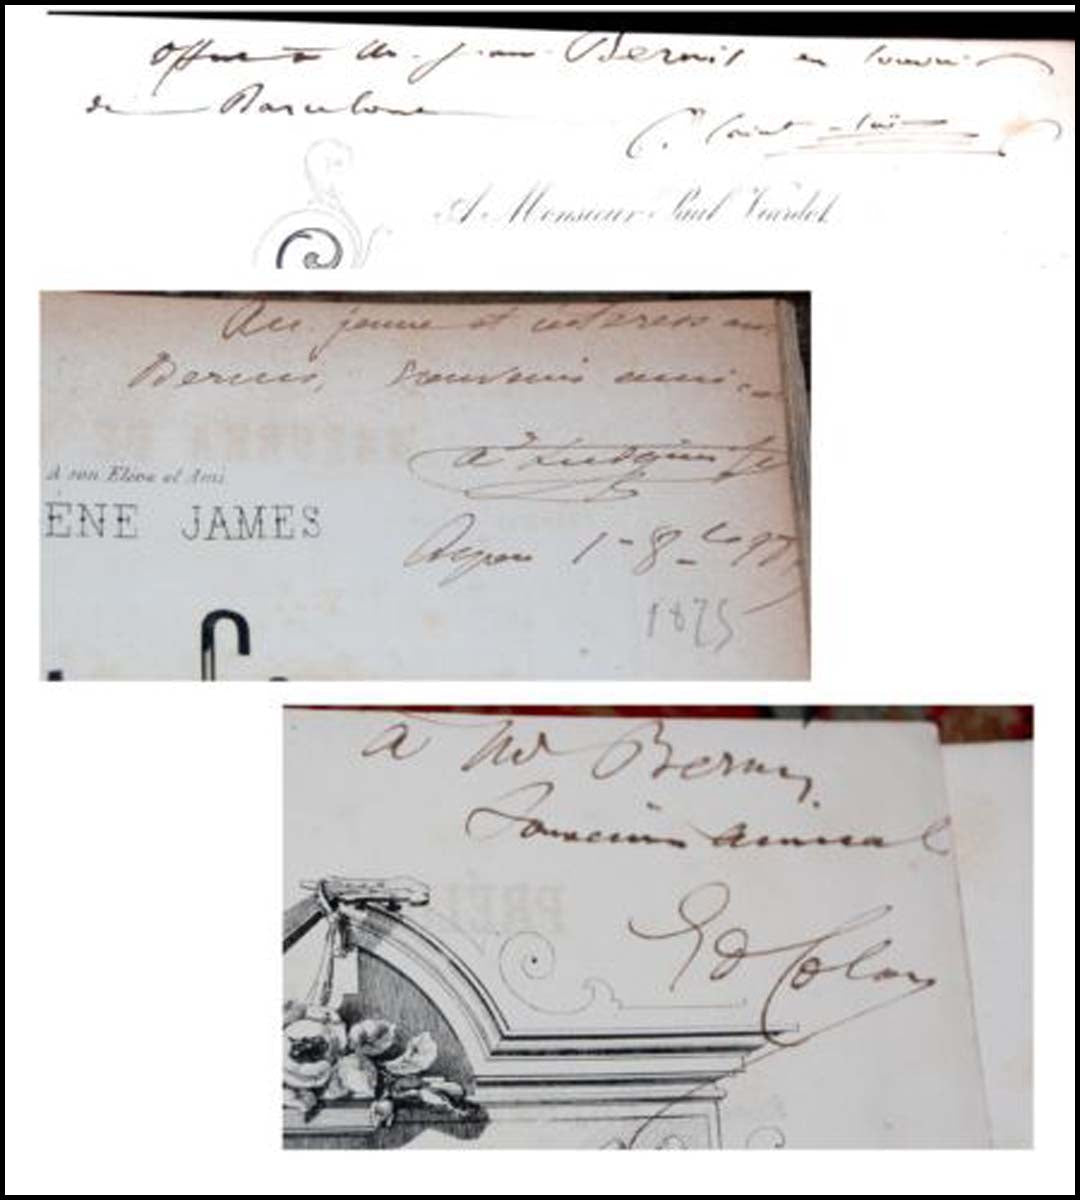 Offert à Mr. Jean Bernis en souvenir
de Barcelone
C. Saint-Saëns
A Monsieur Paul Viardot
Au jeune et intéressant
Bernis, souvenir amical
A son Elève et Ami
ÈNE JAMES
1875
à Mr Bernis
Souvenir amical
Ed Colonne